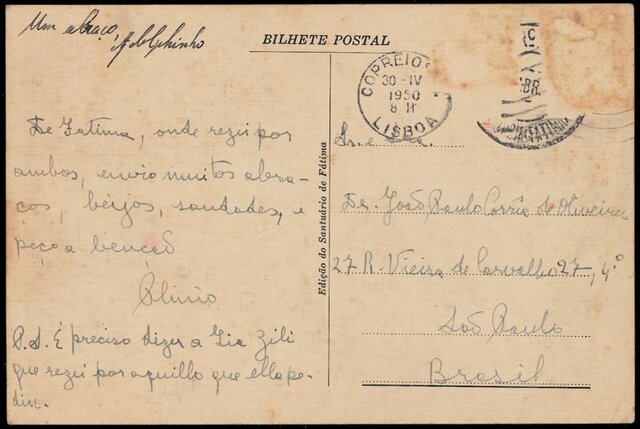 Um abraço,
Adolphinho
BILHETE POSTAL
CORREIOS
30-IV
1950
8 H
LISBOA
De Fatima, onde rezei por
ambos, envio muitos abra-
ços, beijos, saudades, e
peço a bençaõ
Plinio
P.S. É preciso dizer a Tia Zili
que rezei por aquillo que ella pe-
diu.
Edição do Santuário de Fátima
Sr. e Sra.
Dr. João Paulo Corrêa de Oliveira
27 R. Vieira de Carvalho 27, 4°
São Paulo
Brasil